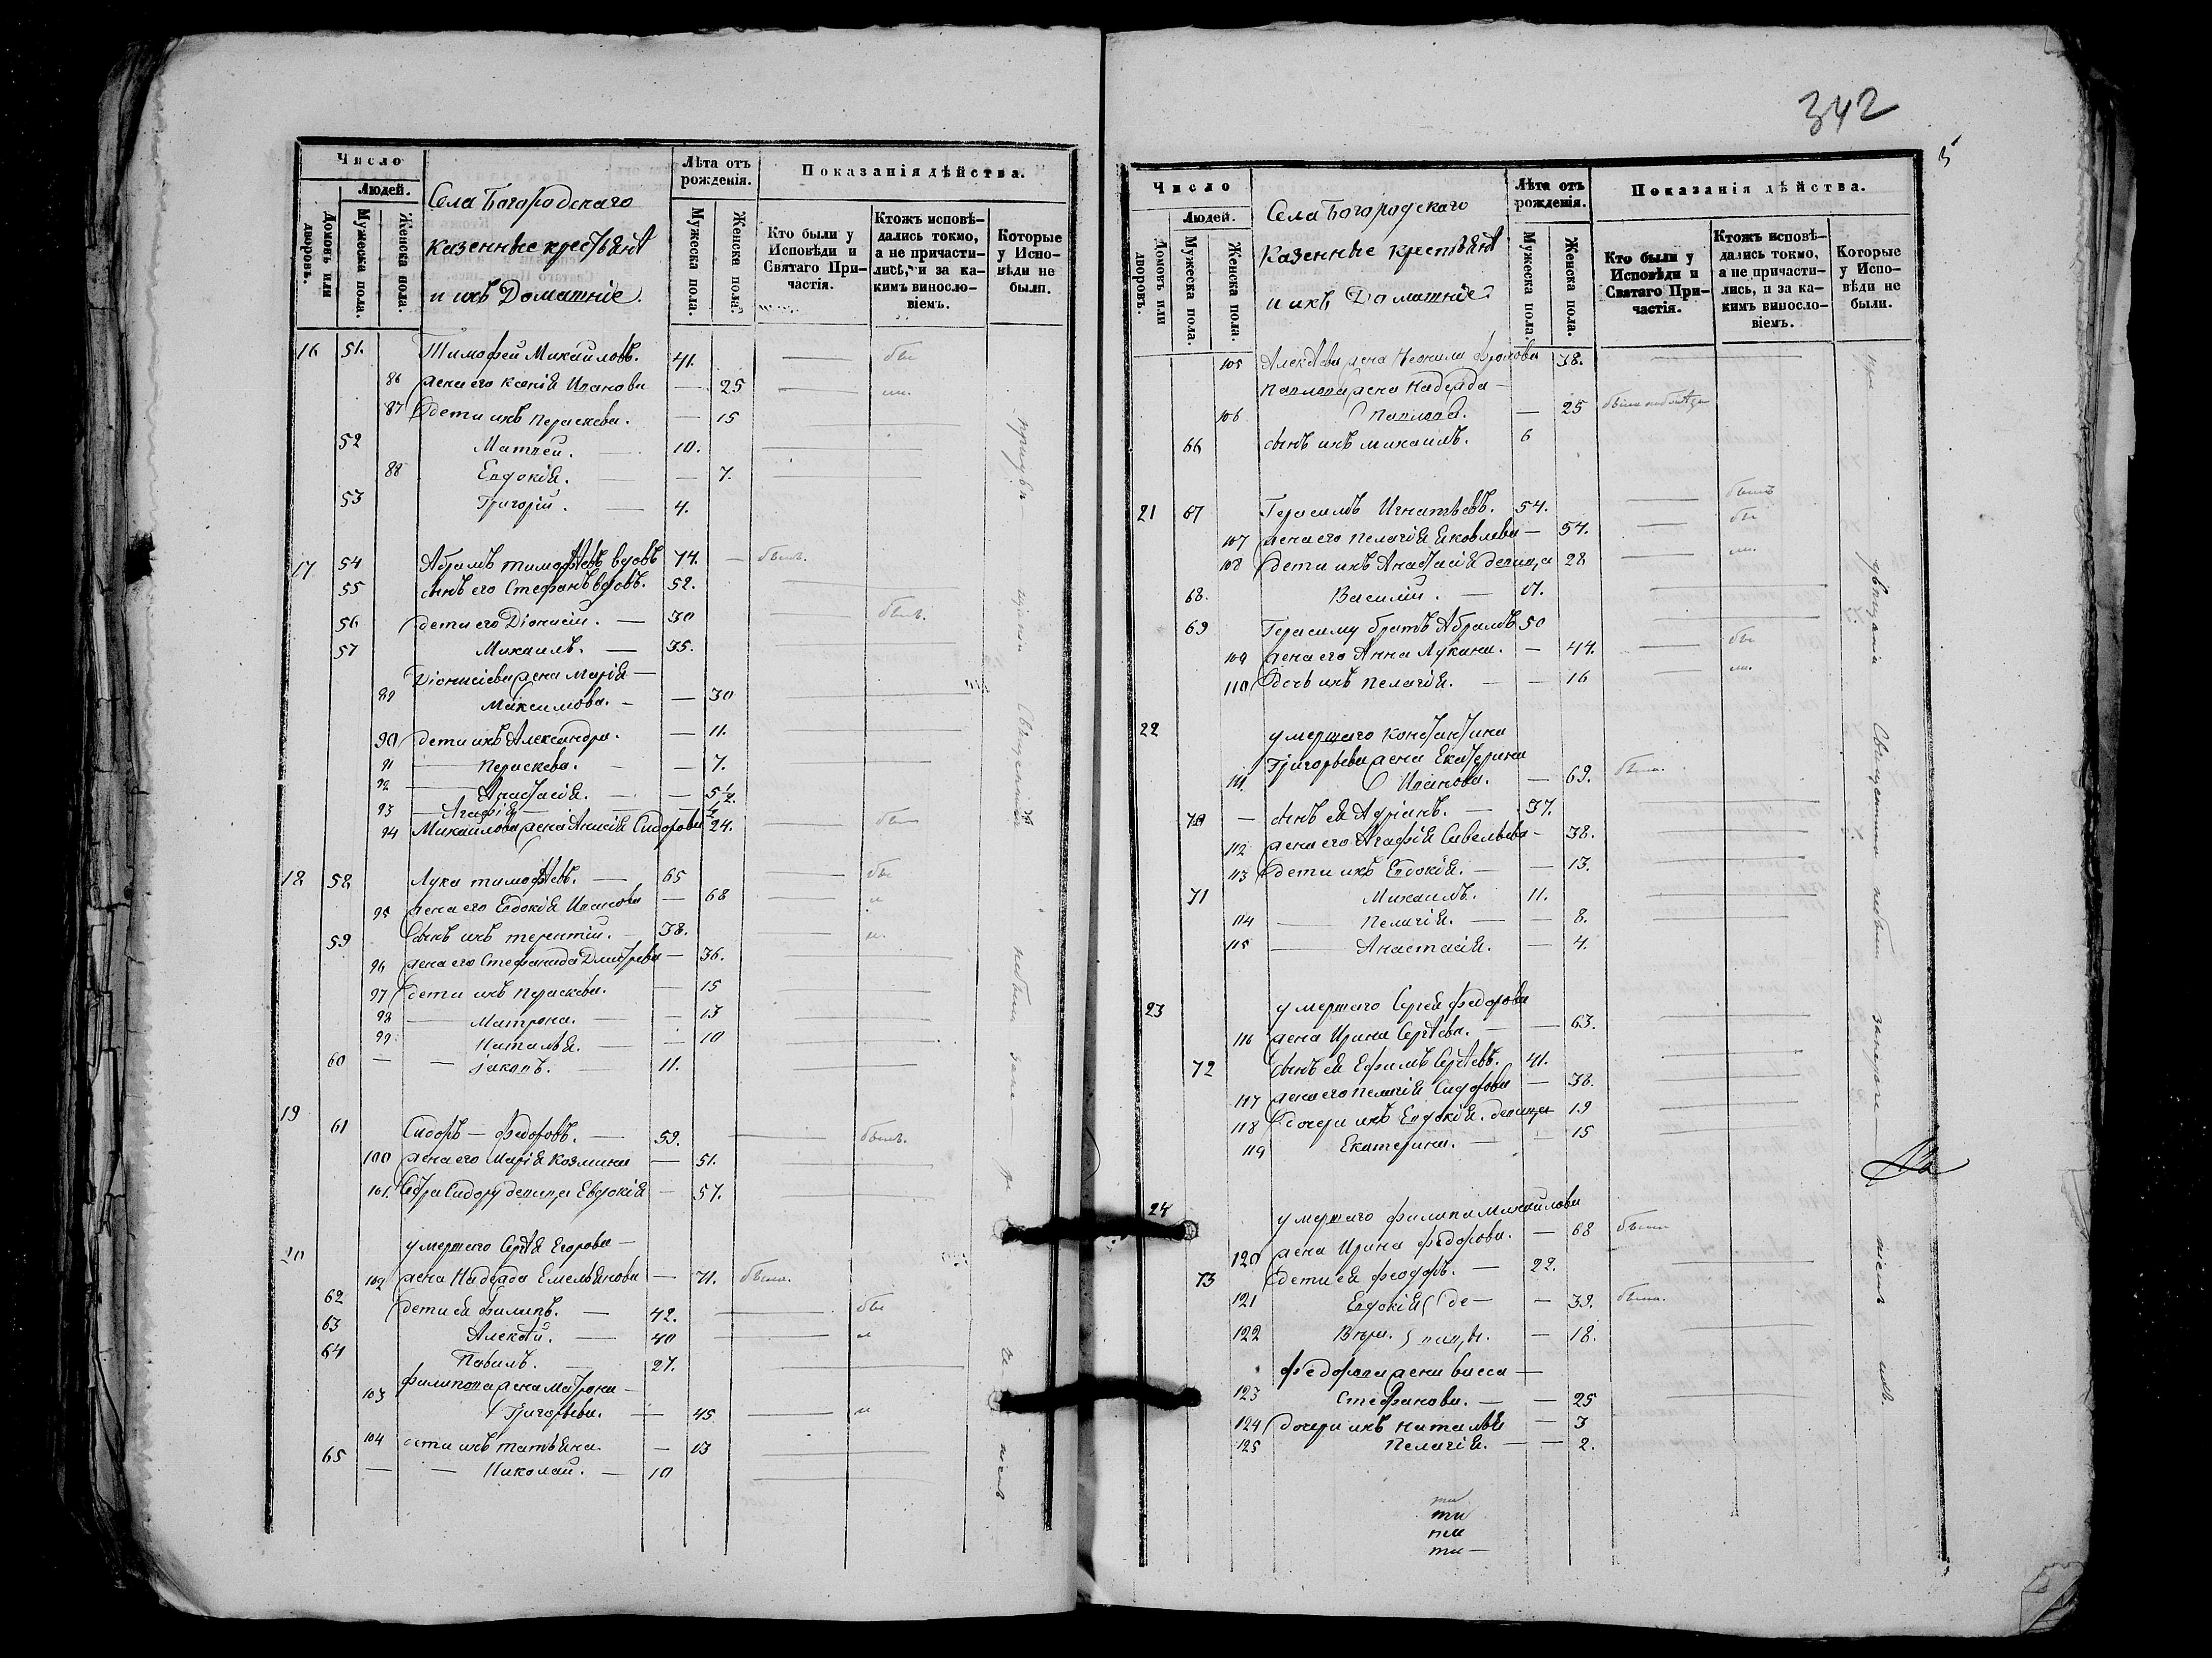 Число
Людей.
Домовъ или дворовъ.
Мужеска пола.
Женска пола.
Села Богородскаго
казенные крестьяне
и ихъ Домашніе.
Лѣта отъ рожденія.
Мужеска пола.
Женска пола.
Показанія дѣйства.
Кто были у Исповѣди и Святаго Причастія.
Ктожъ исповѣдались токмо, а не причастились, и за какимъ винословіемъ.
Которые у Исповѣди не были.
16 51. Тимофей Михайловъ. 41. — бы
86 жена его Ксенія Иванова — 25 — ли.
87 дети ихъ Параскева. — 15
52 Матвей. — 10.
88 Евдокія. — — 7.
53 Григорій. — 4.
17 54 Абрамъ тимофѣевъ вдовъ 74. — былъ.
55 сынъ его Стефанъ вдовъ. 52.
56 дети его Діонисій. — 30 — былъ.
57 Михаилъ. — 35.
Діонисіева жена Марія —
89 Максимова. — — 30
90 дети ихъ Александра. — 11.
91 — Параскева. — — 7.
92 — Анастасія. — — 5 1/2.
93 — Агафія — — 1/2
94 Михайлова жена Анисія Сидорова 24. — бы
18 58 Лука тимофѣевъ. — 65 — бы
95 жена его Евдокія Иванова — 68 — л
59 Сынъ ихъ терентій. — 38. — и.
96 жена его Стефанида Дмитрева — 36.
97 дети ихъ Параскева. — 15
98 — Матрона. — — 13
99. Наталья. — — 10
60 — — яковъ. — 11.
19
61 Сидоръ — Федоровъ. — 59. — былъ.
100 жена его Марія Козмина — 51.
101. Сестра Сидору девица Евдокія — 57.
20 умершаго Сергѣя Егорова —
102 жена Надежда Емельянова — 71. была.
62 дети ея Филипъ. — 42. — бы
63 Алексѣй. — 40 — л
64 Павилъ. — 27.
Филипова жена Матрона —
103 Григорьева. — 45 — и
104 дети ихъ татьяна. — 13
65 — — Николай. — 10
342
5
Число
Людей.
Домовъ или дворовъ.
Мужеска пола.
Женска пола.
Села Богородскаго
Казенные крестьяне
и ихъ Домашніе
Лѣта отъ рожденія.
Мужеска пола.
Женска пола.
Показанія дѣйства.
Кто были у Исповѣди и Святаго Причастія.
Ктожъ исповѣдались токмо, а не причастились, и за какимъ винословіемъ.
Которые у Исповѣди не были.
105 Алексѣева жена Неонила Фролова 38.
Павлова жена Надежда —
106 Павлова. — 25
66 сынъ ихъ Михаилъ. 6
21 67 Герасимъ Игнатьевъ. 54. — былъ
107 жена его Пелагія Яковлева — 54. — бы
108 дети ихъ Анастасія девица 28 — ли.
68. Василій. — 17.
69 Герасиму братъ Абрамъ 50
109 жена его Анна Лукина. — 44. — бы
110 Дочь ихъ Пелагія. — — 16 — ли.
22 умершаго Константина
Григорьева жена Екатерина
111 Иванова. — 69. была.
70 — сынъ ея Адріанъ. — 37.
112 жена его Агафія Савельева — 38.
113 дети ихъ Евдокія. — — 13.
71 Михаилъ. 11.
114 — Пелагія. — — 8.
115 — Анастасія. — 4.
23 умершаго Сергея Федорова
116 жена Ирина Сергѣева. — — 63.
72 сынъ ея Ефимъ Сергѣевъ. 41.
117 жена его Пелагія Сидорова — 38.
118 дочери ихъ Евдокія. девица 19
119 Екатерина. — — 15
24 умершаго Филипа Михайлова
120 жена Ирина Федорова. — 68 была
73 дети ея Феодоръ. — 22.
121 Евдокія де — — 39. была.
122 Вера. вицы. — 18.
Федорова жена васса —
123 Стефанова. — — 25
124 дочери ихъ Наталья — 3
125 Пелагія. — — 2.